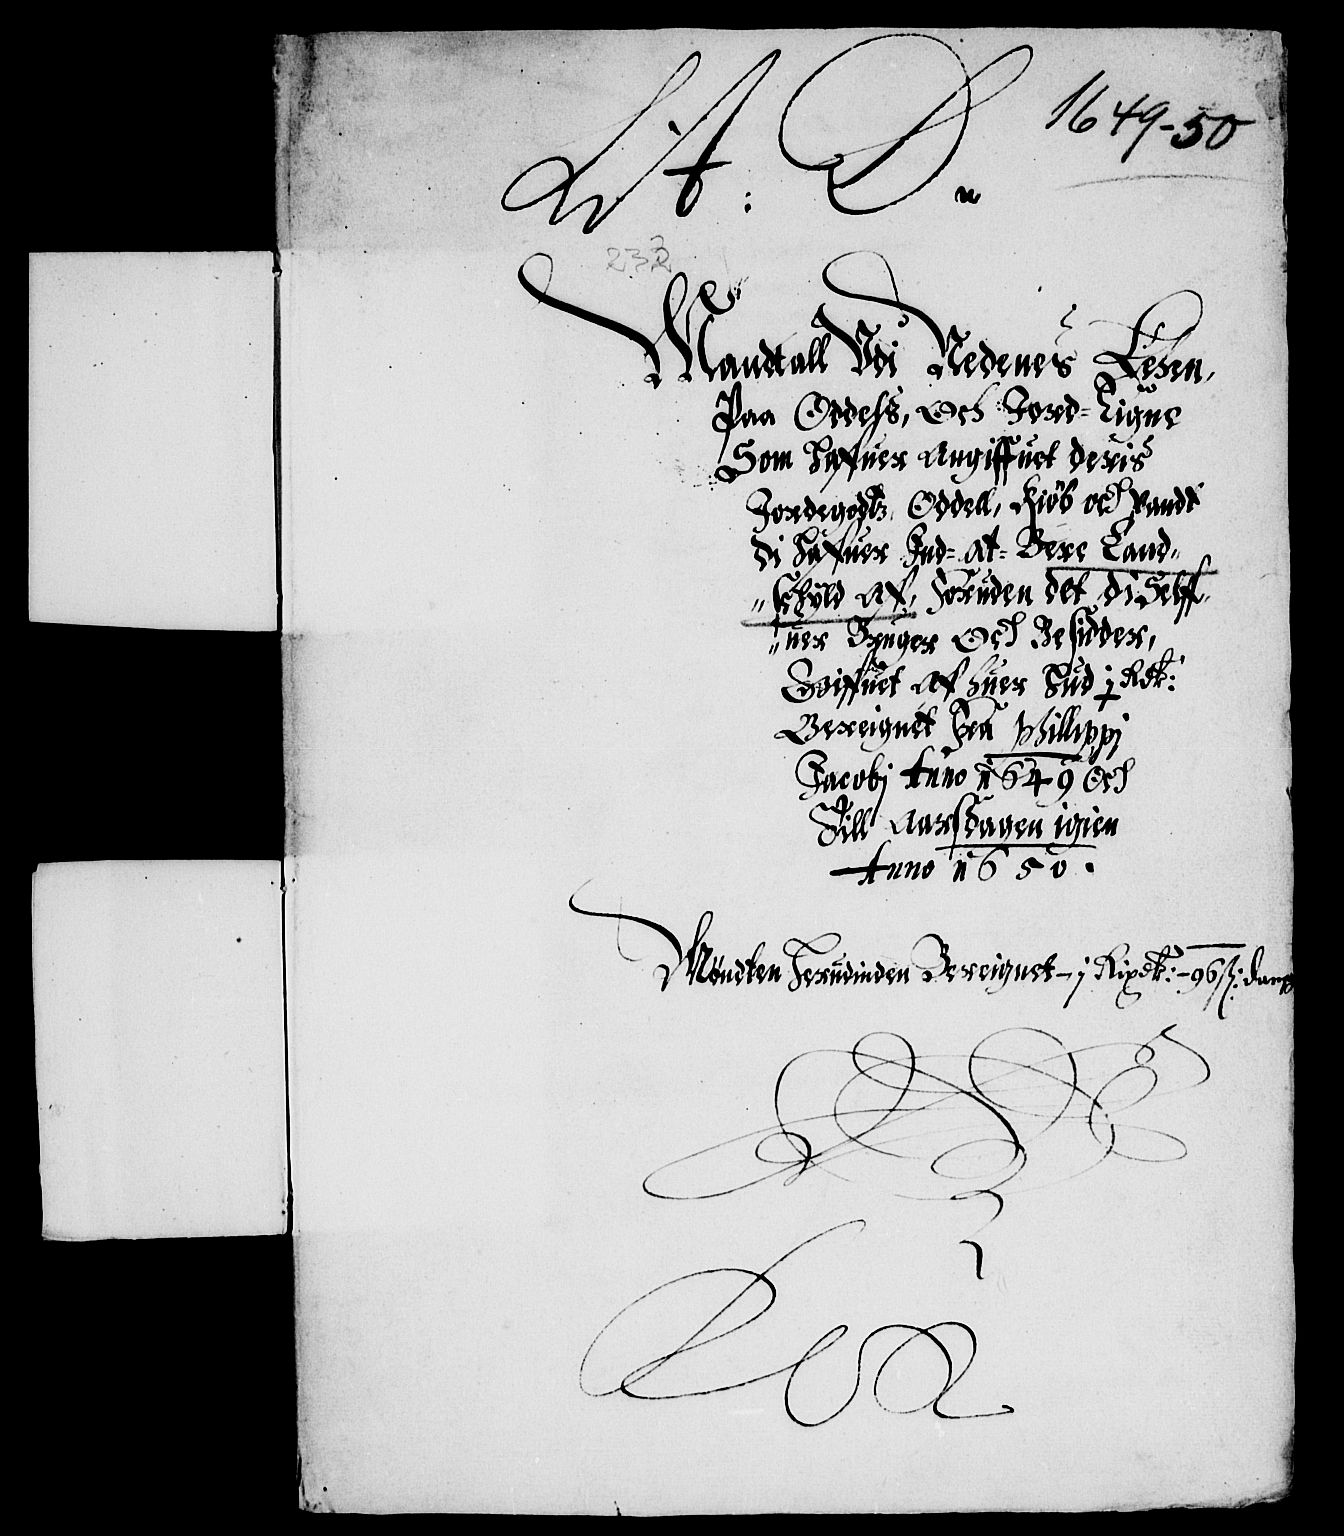 Lit: D.
1649-50
232
Mandtall Vdi Nedenes Lehen,
Paa Oddels, Och Jord-Eigne
Som haffuer Angiffuet deris
Jordegodtz, Oddell, Kiøb och Pandt
di haffuer Ind-at-Bere Land-
schyld af, foruden det di Selff-
uer Bruger Och Besidder,
Goiffuet af huer Hud j Rdr:
Bereignet fra Phillippj
Jacobj Anno 1649 Och
Till Aarsdagen igien
Anno 1650.
Møndten herudinden Bereignet - j Rixdr: - 96 ß: danske